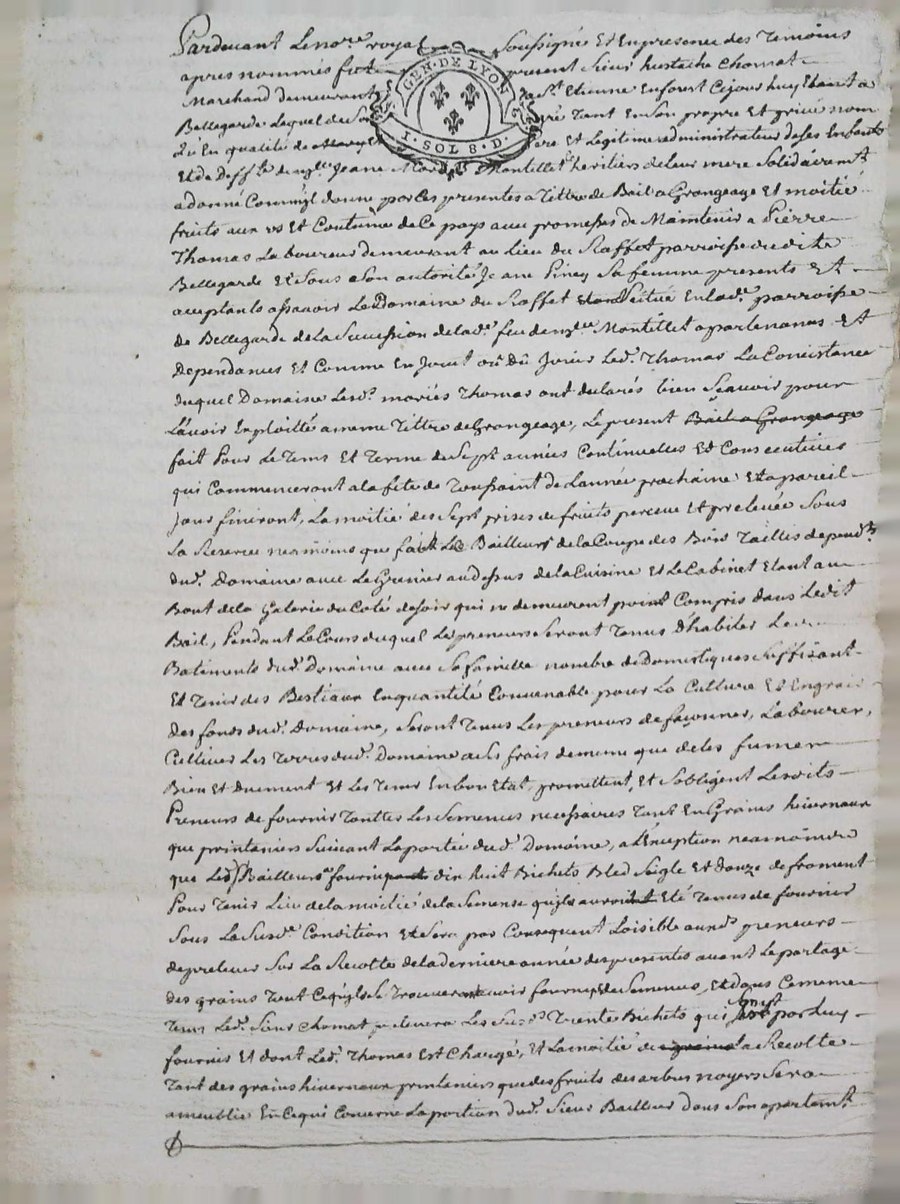 Pardevant Le no.re royal Soussigné Et En presence des Temoins
apres nommés fut present Sieur hustache Chomat
Marchand demeurant a S.t Etienne En forest Cejourdhuy Etant a
Bellegarde Lequel de Son gré Tant En Son propre Et privé nom
qu En qualité de pere Et Legitime administrateur de Ses Enfants
Et de Deff.te Jeane Montillet heritiers de leur mere Solidairem.t
a donné Comm'il donne par Ces presentes a Tittre de Bail a Grangeage Et moitié
fruits aux us Et Coutume de Ce pays avec promesses de Maintenir a Pierre
Thomas Laboureur demeurant au Lieu du Raffet parroisse dudite
Bellegarde Et Sous Son autorité Jeane Piney Sa femme presents Et
acceptants assavoir Le Domaine du Raffet Situé En lad.e parroisse
de Bellegarde de La Succession de lad.e feue Montillet apartenances Et
Dependances Et Comme En Jouit ou Dû Jouir Led.t Thomas La Concistance
duquel Domaine Lesd.s mariés Thomas ont declarés bien Sçavoir pour
L'avoir Exploitté a meme Tittre de Grangeage, Le present Bail a Grangeage
fait Pour Le Tems Et Terme de Sept années Continuelles Et Consecutives
qui Commenceront a la fete de Toussaint de L'année prochaine Et a pareil
Jour finiront, La moitié des Sept prises de fruits percue Et prelevée Sous
La Reserve neamoins que fait Le Bailleurs de la Coupe des Bois Taillis depend.ts
dud.t Domaine avec Le Grenier au dessus de la Cuisine Et Le Cabinet Etant au
Bout de la Galerie du Coté de Soir qui ne demeurent point Compris dans Ledit
Bail, Pendant Le Cours duquel Les preneurs Seront Tenus d'habiter Les
Batiments dud.t Domaine avec Sa famille nombre de Domestiques Suffisant
Et Tenir des Bestiaux En quantité Convenable pour La Culture Et Engrais
des fonds dud.t Domaine, Seront Tenus Les preneurs de façonner, Labourer,
Cultiver Les Terres dud.t Domaine a Ses frais de meme que de les fumer
Bien Et Duement Et Les Tenir En bon Etat, promettent, Et S'obligent Lesdits
Preneurs de fournir Touttes Les Semences necessaires Tant En Grains hivernaux
que printaniers Suivant La portée dud.t Domaine, a L'Exception neamoins
que Led.t Bailleurs fournira dix huit Bichets Bled Seigle Et douze de froment
Pour Tenir Lieu de la moitié de la Semence qu'ils auroit Eté Tenus de fournir
Sous La Susd.e Condition Et Sera par Consequent Loisible aux d.s preneurs
de prelever Sur La Recolte de la derniere année des presentes avant Le partage
des grains Tout Ce qu'ils Se Trouveront avoir fournys de Semences, Et dans Ce meme
Tems Led.t Sieur Chomat prelevera Les Sus.d.s Trente Bichets qui Sont par luy
fournis Et dont Led.t Thomas Est Chargé, Et La moitié de la Recolte
Tant des grains hivernaux printaniers que des fruits des arbres noyers Sera
ameublie En Ce qui Concerne La portion dud.t Sieur Bailleur dans Son apartem.t
GEN. DE LYON
I · SOL 8 · D ·